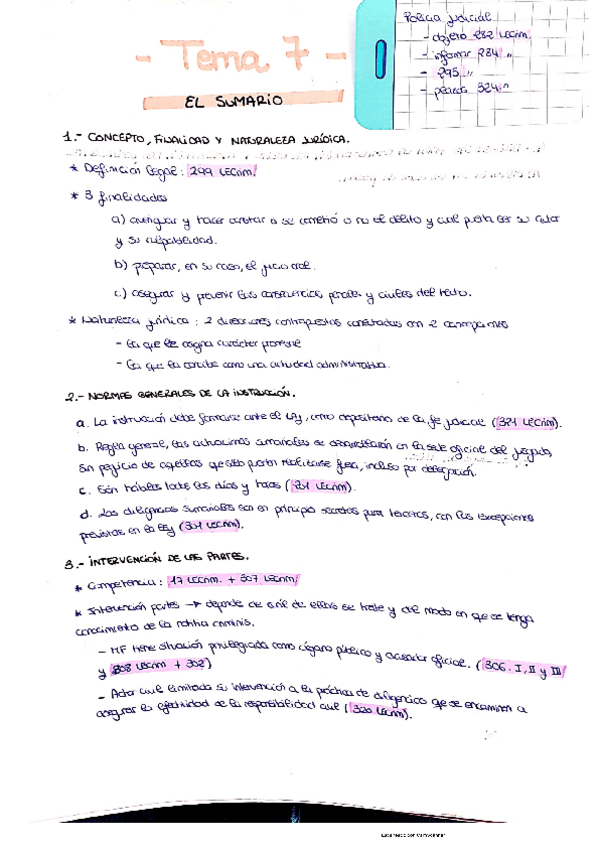 - Tema 7 -
EL SUMARIO
Policía judicial
- objeto 282 LECrim.
- informar 284 "
- 295 "
- peladas 324 "
1.- CONCEPTO, FINALIDAD Y NATURALEZA JURÍDICA.
* Definición legal: 299 LECrim.
* 3 finalidades
a) averiguar y hacer constar o se cometió o no el delito y cual pueda ser su autor
y su culpabilidad.
b) preparar, en su caso, el juicio oral.
c) asegurar y prevenir las consecuencias penales y civiles del hecho.
* Naturaleza jurídica: 2 direcciones contrapuestas conectadas con 2
- La que le asigna carácter procesal
- La que la concibe como una actividad administrativa.
2.- NORMAS GENERALES DE LA INSTRUCCIÓN.
a. La instrucción debe formarse ante el LAJ, como depositario de la fe judicial (321 LECrim).
b. Regla general, las actuaciones sumariales se desarrollarán en la sede oficial del juzgado,
sin perjuicio de aquellas que sólo puedan realizarse fuera, incluso por delegación.
c. Són hábiles todos los días y horas (201 LECrim).
d. Las diligencias sumariales son en principio secretas para terceros, con las excepciones
previstas en la ley (301 LECrim).
3.- INTERVENCIÓN DE LAS PARTES.
* Competencia: 17 LECrim. + 307 LECrim.
* Intervención partes → depende de cuál de ellas se trate y del modo en que se tenga
conocimiento de la notitia criminis.
- MF tiene situación privilegiada como órgano público y acusador oficial. (306. I, II y III
y 308 LECrim + 302)
- Actor civil limitada su intervención a la práctica de diligencias que se encaminen a
asegurar la efectividad de la responsabilidad civil (320 LECrim).